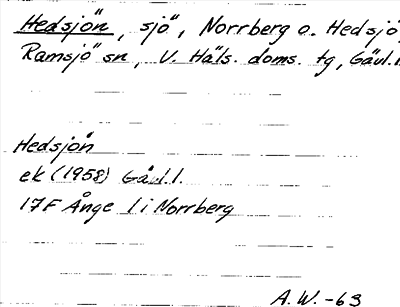 Hedsjön, sjö, Norrberg o. Hedsjö,
Ramsjö sn, V. Häls. doms. tg, Gävl.l.
Hedsjön
ek (1958) Gä.l.
17F Ånge 1 i Norrberg
A.W. -63